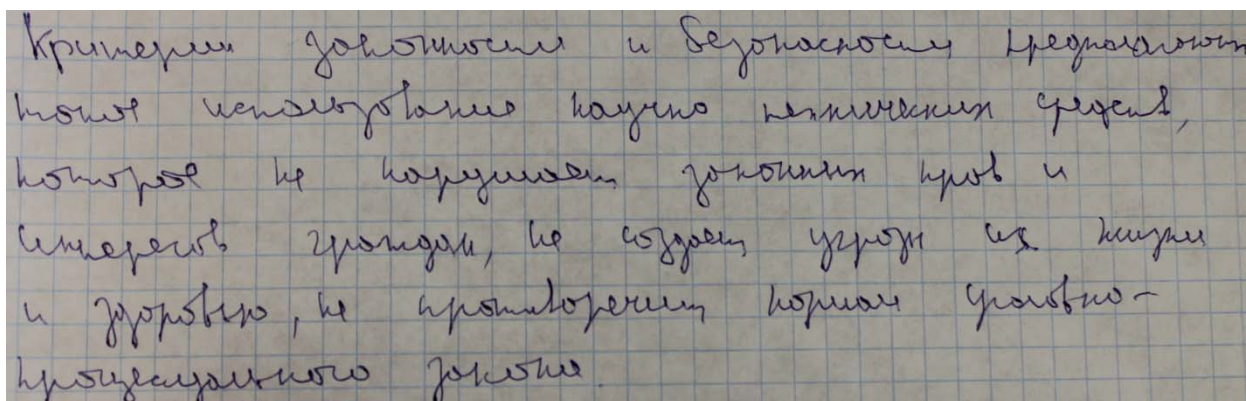 Критерии законности и безопасности предполагают
такое использование научно технических средств,
которое не нарушает законных прав и
интересов граждан, не создает угрозы их жизни
и здоровью, не противоречит нормам уголовно-
процессуального закона.